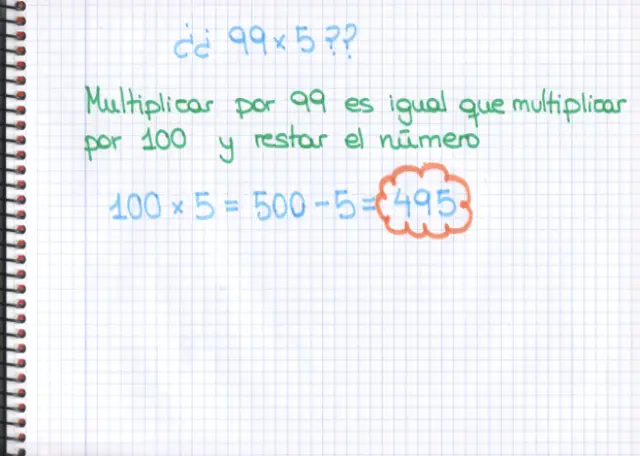 ¿¿ 99 × 5 ??
Multiplicar por 99 es igual que multiplicar
por 100 y restar el número
100 × 5 = 500 - 5 = 495